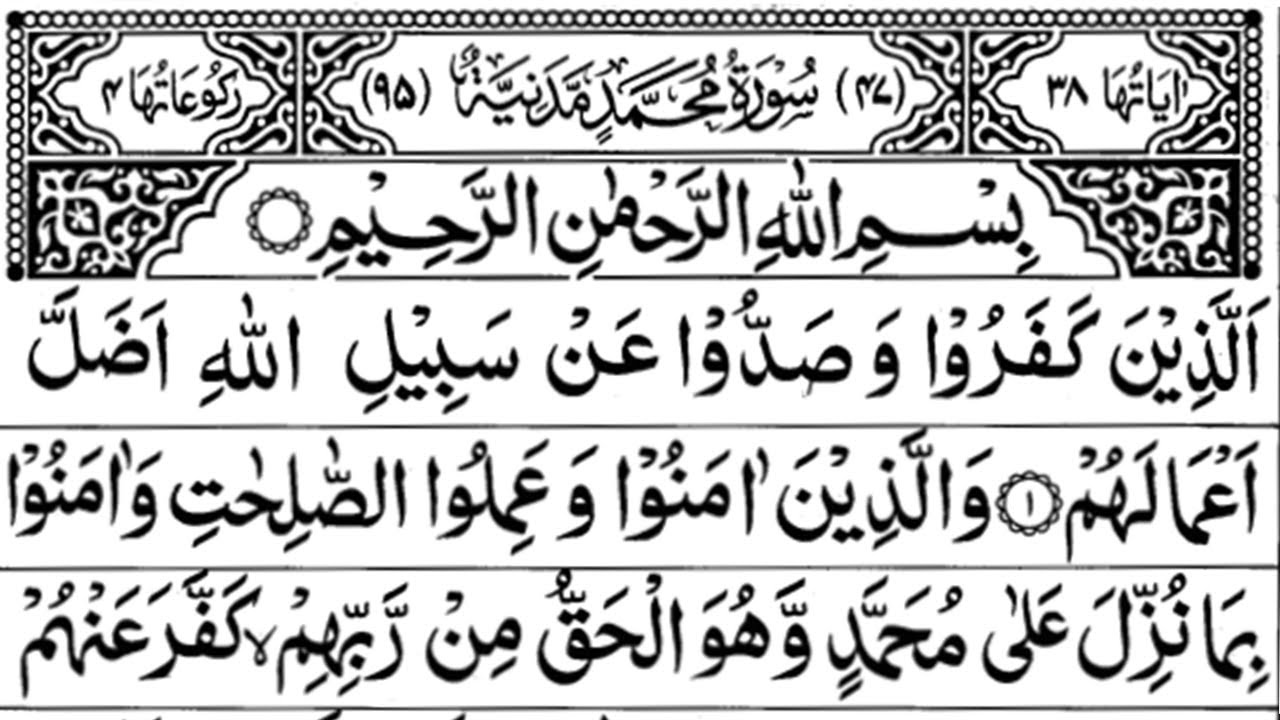 اٰیَاتُهَا ۳۸ (۴۷) سُوْرَةُ مُحَمَّدٍ مَّدَنِیَّةٌ (۹۵) رُكُوْعَاتُهَا ۴
بِسْمِ اللّٰهِ الرَّحْمٰنِ الرَّحِیْمِ
اَلَّذِیْنَ كَفَرُوْا وَ صَدُّوْا عَنْ سَبِیْلِ اللّٰهِ اَضَلَّ
اَعْمَالَهُمْ ۱ وَالَّذِیْنَ اٰمَنُوْا وَ عَمِلُوا الصّٰلِحٰتِ وَاٰمَنُوْا
بِمَا نُزِّلَ عَلٰی مُحَمَّدٍ وَّهُوَ الْحَقُّ مِنْ رَّبِّهِمْ ۙ كَفَّرَ عَنْهُمْ